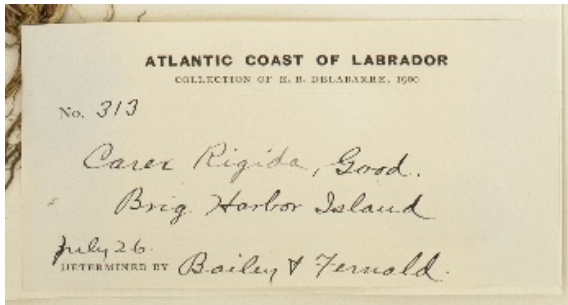 ATLANTIC COAST OF LABRADOR
COLLECTION OF E. B. DELABARRE, 1900
No. 313
Carex Rigida, Good.
Brig Harbor Island
July 26.
DETERMINED BY Bailey & Fernald.